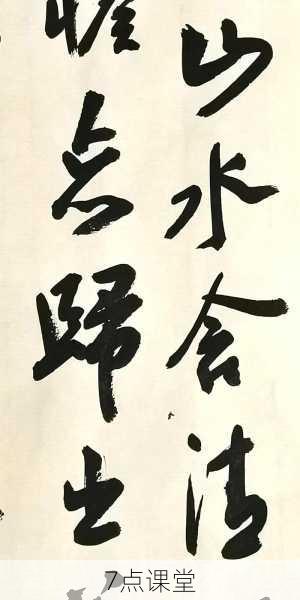 山水含清
忘歸出
7点课堂